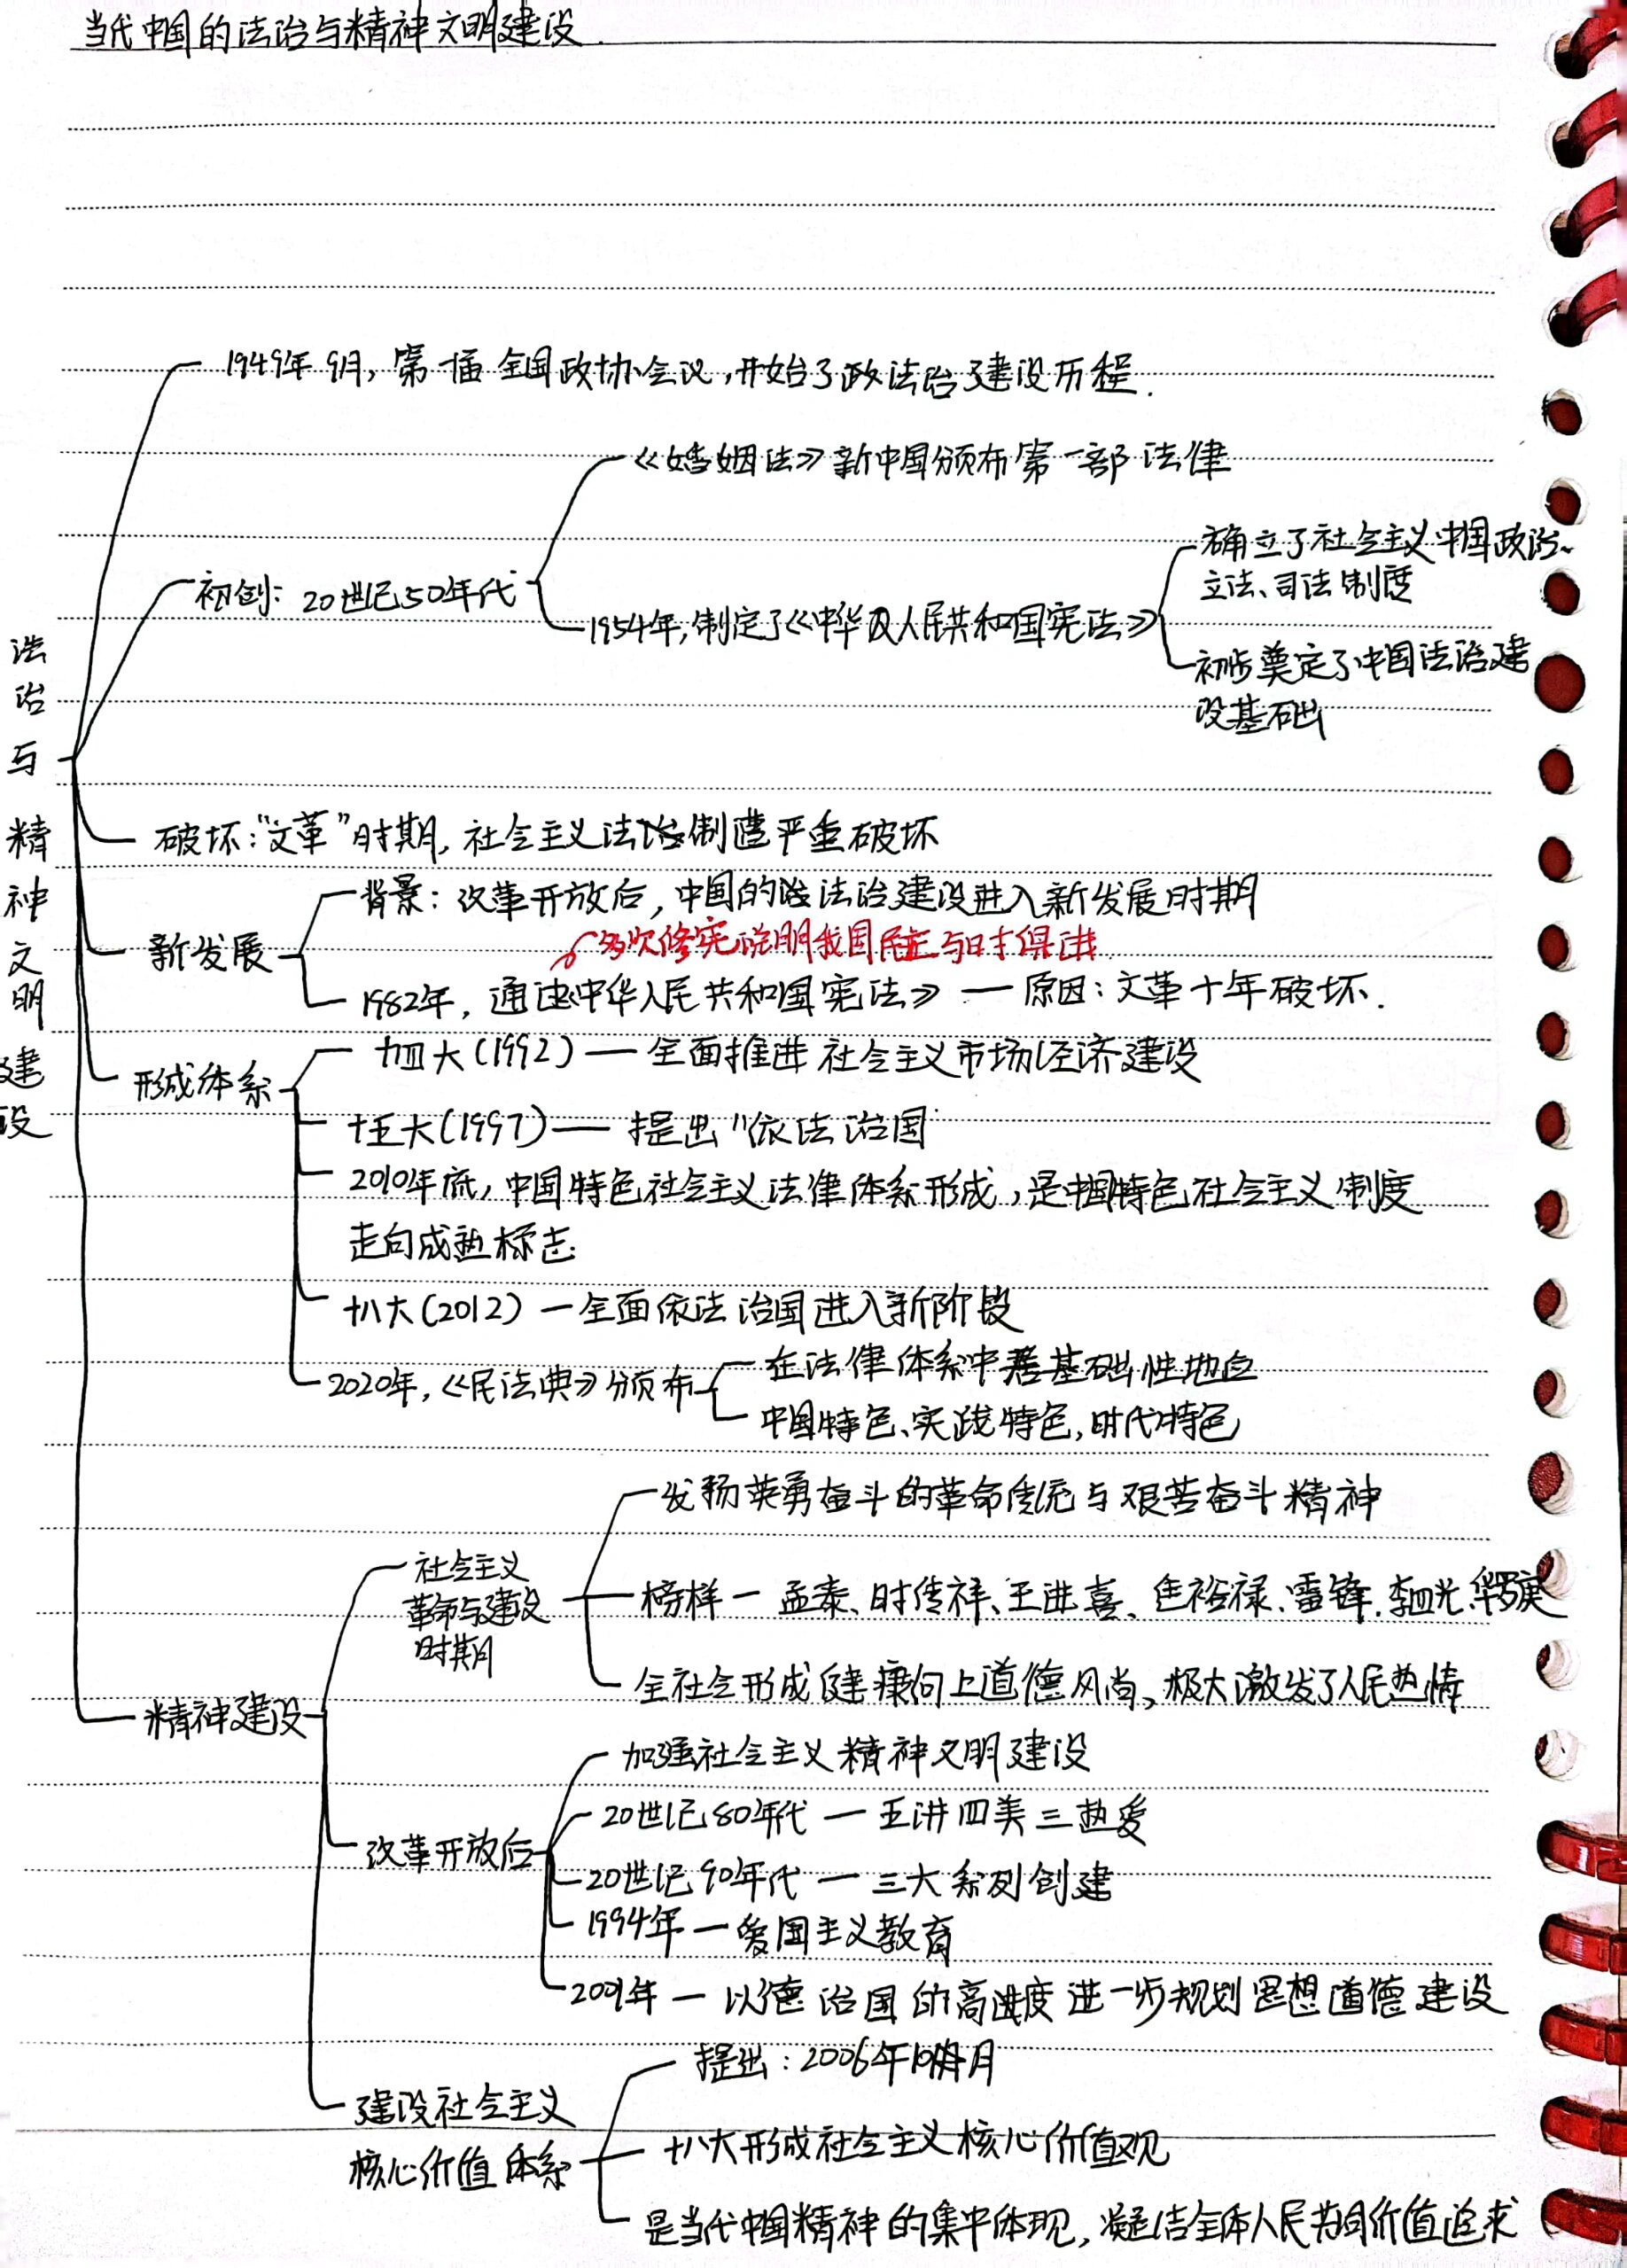 当代中国的法治与精神文明建设
法治与精神文明建设
1949年9月,第一届全国政协会议,开始了政法治建设历程.
初创:20世纪50年代
《婚姻法》新中国颁布第一部法律
1954年,制定了《中华人民共和国宪法》
确立了社会主义中国政治、
立法、司法制度
初步奠定了中国法治建
设基础
破坏:“文革”时期,社会主义法制遭严重破坏
新发展
背景:改革开放后,中国的法治建设进入新发展时期
多次修宪说明我国民主与时俱进
1982年,通过《中华人民共和国宪法》—原因:文革十年破坏.
形成体系
十四大(1992)—全面推进社会主义市场经济建设
十五大(1997)—提出“依法治国
2010年底,中国特色社会主义法律体系形成,是中国特色社会主义制度
走向成熟标志
十八大(2012)—全面依法治国进入新阶段
2020年,《民法典》颁布
在法律体系中居基础性地位
中国特色、实践特色,时代特色
精神建设
社会主义
革命与建设
时期
发扬英勇奋斗的革命传统与艰苦奋斗精神
榜样—孟泰、时传祥、王进喜、焦裕禄、雷锋.李四光.华罗庚
全社会形成健康向上道德风尚,极大激发了人民热情
改革开放后
加强社会主义精神文明建设
20世纪80年代—五讲四美三热爱
20世纪90年代—三大系列创建
1994年—爱国主义教育
2001年—以德治国的高度进一步规划思想道德建设
建设社会主义
核心价值体系
提出:2006年10月
十八大形成社会主义核心价值观
是当代中国精神的集中体现,凝结全体人民共同价值追求